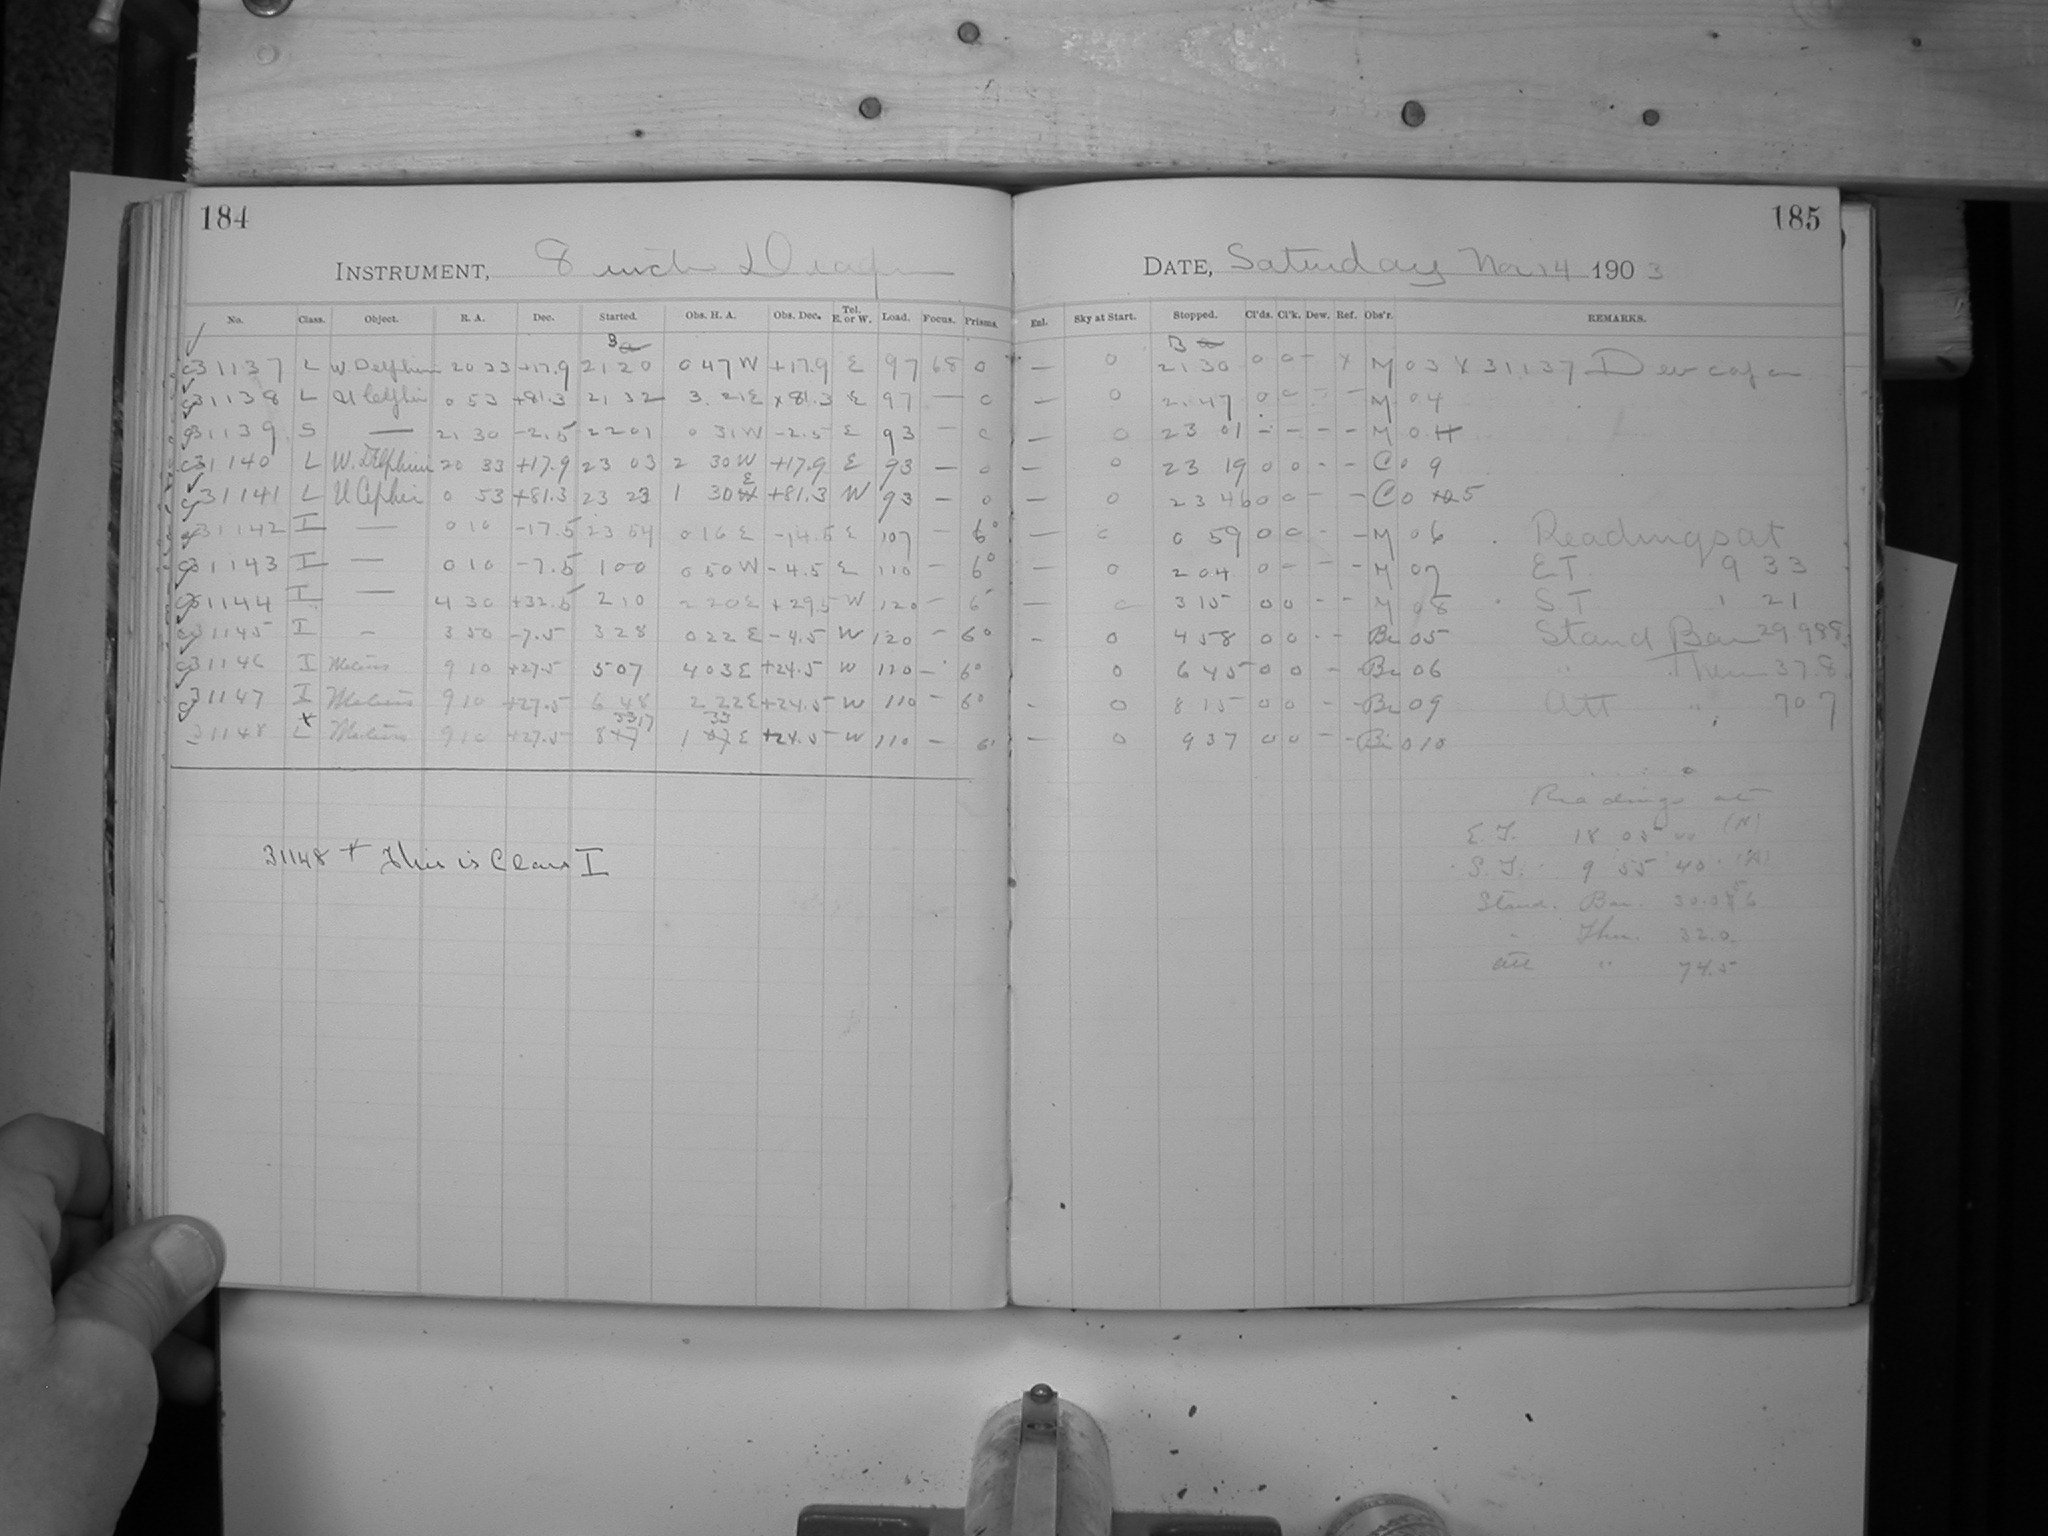 184
185
INSTRUMENT, 8 inch Draper
DATE, Saturday Nov 14 1903
No. Class. Object. R. A. Dec. Started. Obs. H. A. Obs. Dec. Tel. E. or W. Load. Focus. Prisms. Enl. Sky at Start. Stopped. Cl'ds. Cl'k. Dew. Ref. Obs'r. REMARKS.
B B
31137 L W. Delphini 20 33 +17.9 21 20 0 47 W +17.9 E 97 68 0 — 0 21 30 0 0 - x M 03 x 31137 Dew cap on
31138 L U Cephei 0 53 +81.3 21 32 3. 21 E +81.3 E 97 — 0 — 0 21 47 0 0 - - M 04
31139 S — 21 30 -2.5 22 01 0 31 W -2.5 E 93 - 0 — 0 23 01 - - - - M 04
31140 L W. Delphini 20 33 +17.9 23 03 2 30 W +17.9 E 93 — 0 — 0 23 19 0 0 - - Co 9
31141 L U Cephei 0 53 +81.3 23 23 1 30 E +81.3 W 93 — 0 — 0 23 46 0 0 - - Co 5
31142 I — 0 10 -17.5 23 54 0 16 E -14.5 E 107 - 6° — 0 0 59 0 0 - - M 06 Readings at
31143 I — 0 10 -7.5 1 00 0 50 W -4.5 E 110 - 6° — 0 2 04 0 - - - M 07 E T. 9 33
31144 I — 4 30 +32.5 2 10 2 20 E +29.5 W 120 - 6° — 0 3 15 0 0 - - M 08 S T 1 21
31145 I - 3 50 -7.5 3 28 0 22 E -4.5 W 120 - 6° - 0 4 58 0 0 - - Bi 05 Stand Bar 29.988
31146 I Meteors 9 10 +27.5 5 07 4 03 E +24.5 W 110 - 6° 0 6 45 0 0 - Bi 06 " Ther 37.8
31147 I Meteors 9 10 +27.5 6 48 2 22 E +24.5 W 110 - 6° - 0 8 15 0 0 - - Bi 09 Att " 70 7
31148 L x Meteors 9 10 +27.5 8 17 1 33 E +24.5 W 110 - 6° — 0 9 37 0 0 - - Bi 010
Readings at
E. T. 18 05 00 (N)
31148 x This is Class I
S. T. 9 55 40
Stand. Bar.
" Ther. 32.0.
Att " 74.5